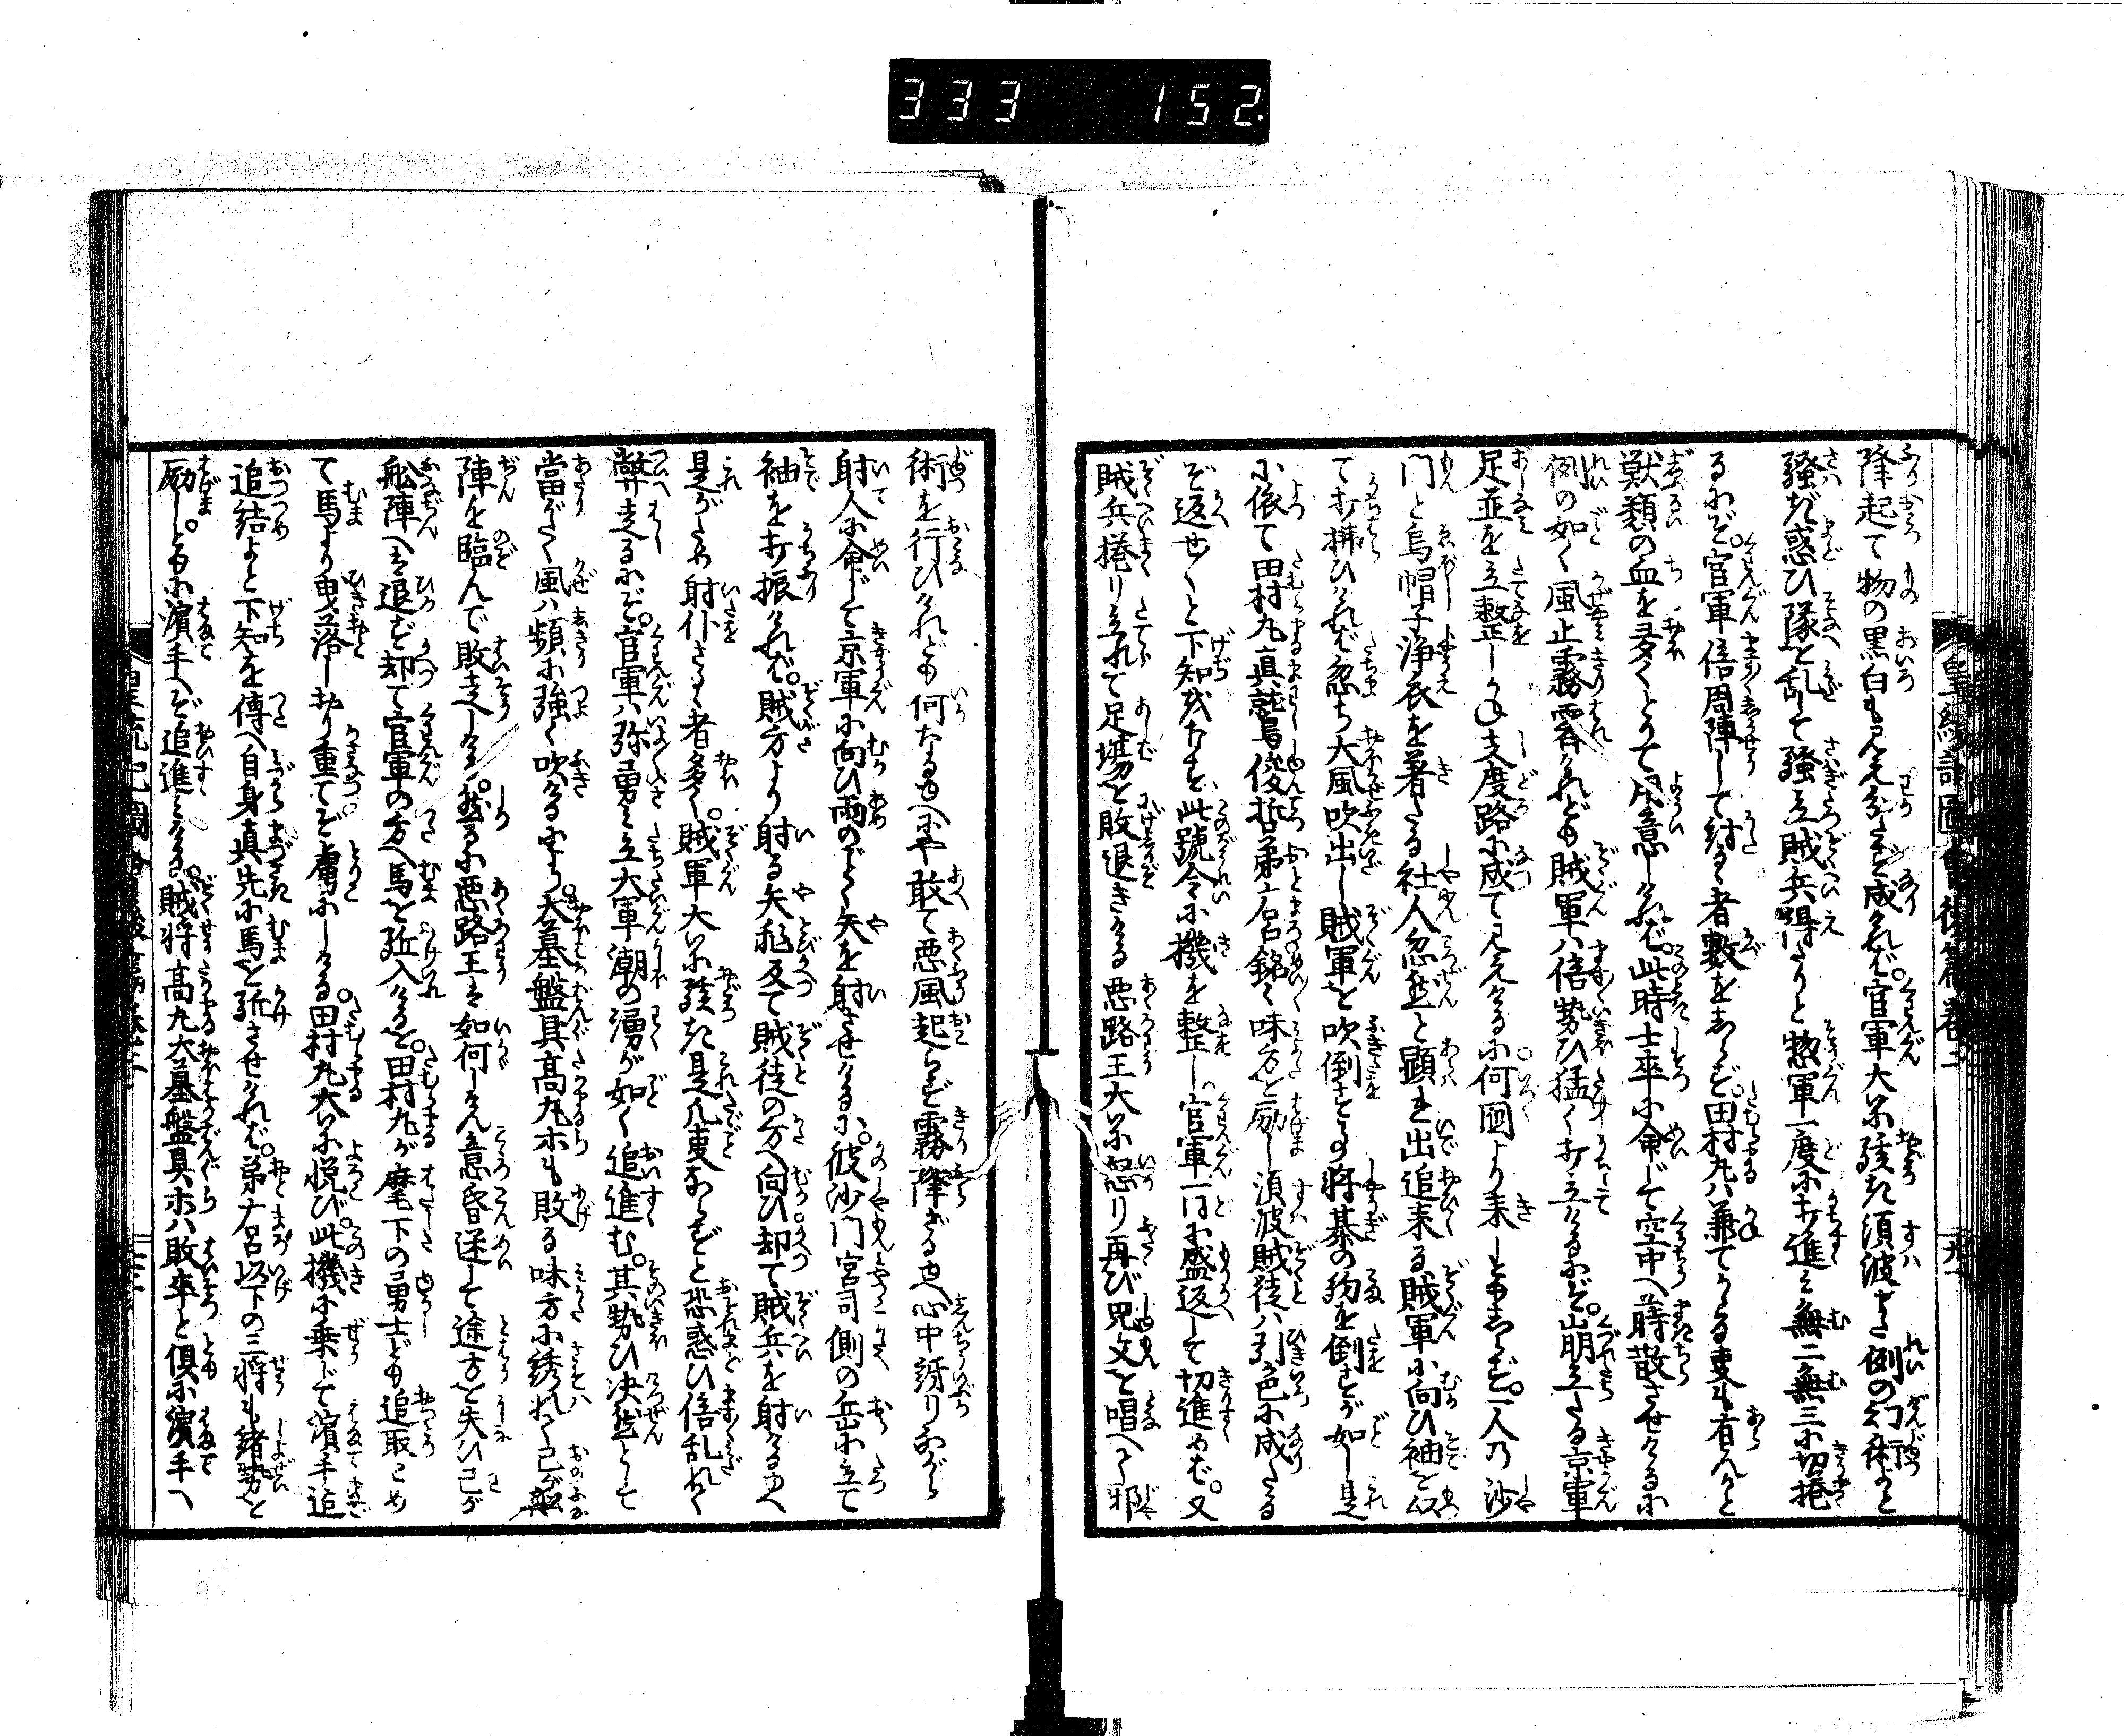 333 152.
皇統記圖會後篇巻二 九
降起て物の黒白も見え分ざる程に成ければ。官軍大いに駭き須波またさ例の幻術よと
騒ぎ惑ひ隊を乱して強立賊兵得たりと惣軍一度に打進み無二無三に切捲
るにぞ。官軍倍周陣して討るゝ者数をしらず。田村丸ハ兼てかゝる事も有んかと
獣類の血を多くとりて用意しければ。此時士卒に命じて空中へ蒔散させけるに
例の如く風止霧霽けれども賊軍ハ倍勢ひ猛く打立けるにぞ。崩立たる京軍
足並を立整しかね支度路に成て見えけるに何国より来しともしらず。一人乃沙
門と烏帽子浄衣を著たる社人忽然と顕れ出追来る賊軍に向ひ袖を以
て打拂ひければ忽ち大風吹出し賊軍を吹倒すこと将棊の駒を倒すが如し是
に依て田村丸真鷲俊哲弟麻呂銘々味方を励し須波賊徒ハ引色に成たる
ぞ返せ〳〵と下知成たまへバ此號令に機を整し。官軍一同に盛返して切進めば。又
賊兵捲り立れて足場を敗退きける悪路王大いに怒り再び咒文を唱へて邪
術を行ひけれども何なるゆへにや敢て悪風起らず霧降ざるゆへ心中訝りながら
射人に命じて京軍に向ひ雨のごとく矢を射させけるに。彼沙門宮司側の岳に立て
袖を打振ければ。賊方より射る矢飛反て賊徒の方へ向ひ却て賊兵を射けるゆへ
是がため射仆さるゝ者多く。賊軍大いに駭き是凡事ならずと恐惑ひ倍乱れて
弊走るにぞ。官軍ハ弥勇み立大軍潮の湧が如く追進む。其勢ひ决然として
當がたく風ハ頻に強く吹ける故に大墓盤具高丸ホも敗る味方に誘れて己が船
陣を臨んで敗走しける。然るに悪路王ハ如何しけん意昏迷して途方を失ひ己が
舩陣へは退ず却て官軍の方へ馬を馳入けるを。田村丸が麾下の勇士ども追取こめ
て馬より曳落しやり重てぞ虜にしける。田村丸大いに悦び。此機に乗じて濱手迄
追結よと下知を傳へ自身真先に馬を馳させければ。弟麻呂以下の三将も諸勢を
励し。ともに濱手へぞ追進みける。賊将高丸大墓盤具ホハ敗卒と倶に濱手へ